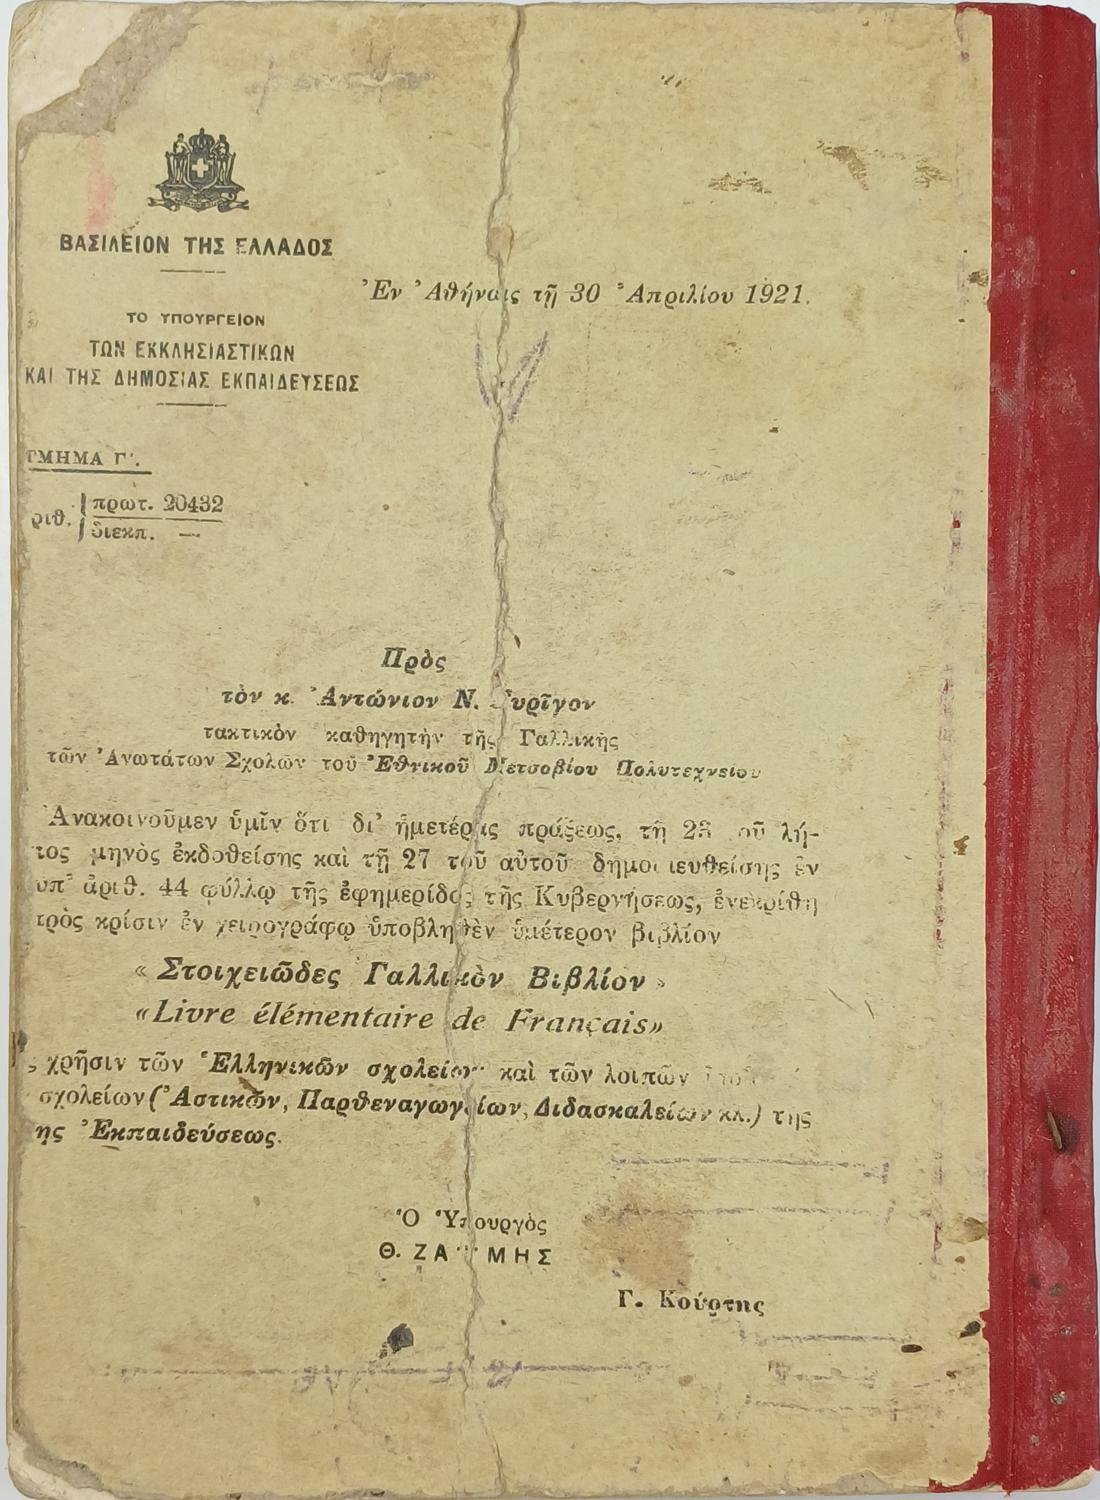 ΒΑΣΙΛΕΙΟΝ ΤΗΣ ΕΛΛΑΔΟΣ
Ἐν Ἀθήναις τῇ 30 Ἀπριλίου 1921.
ΤΟ ΥΠΟΥΡΓΕΙΟΝ
ΤΩΝ ΕΚΚΛΗΣΙΑΣΤΙΚΩΝ
ΚΑΙ ΤΗΣ ΔΗΜΟΣΙΑΣ ΕΚΠΑΙΔΕΥΣΕΩΣ
ΤΜΗΜΑ Γ'.
ριθ. πρωτ. 20432
διεκπ. —
Πρὸς
τὸν κ. Ἀντώνιον Ν.
τακτικὸν καθηγητὴν τῆς Γαλλικῆς
τῶν Ἀνωτάτων Σχολῶν τοῦ Ἐθνικοῦ Μετσοβίου Πολυτεχνείου
Ἀνακοινοῦμεν ὑμῖν ὅτι δι' ἡμετέρας πράξεως, τῇ οῦ λή-
τος μηνὸς ἐκδοθείσης καὶ τῇ 27 τοῦ αὐτοῦ δημοσιευθείσης ἐν
ὑπ' ἀριθ. 44 φύλλῳ τῆς ἐφημερίδος τῆς Κυβερνήσεως, ἐνεκρίθη
πρὸς κρίσιν ἐν χειρογράφῳ ὑποβληθὲν ὑμέτερον βιβλίον
«Στοιχειῶδες Γαλλικὸν Βιβλίον»
«Livre élémentaire de Français»
ς χρῆσιν τῶν Ἑλληνικῶν σχολείων καὶ τῶν λοιπῶν
σχολείων (Ἀστικῶν, Παρθεναγωγείων, Διδασκαλείων κλ.) τῆς
ης Ἐκπαιδεύσεως.
Ὁ Ὑπουργὸς
Θ. ΖΑΪΜΗΣ
Γ. Κούρτης